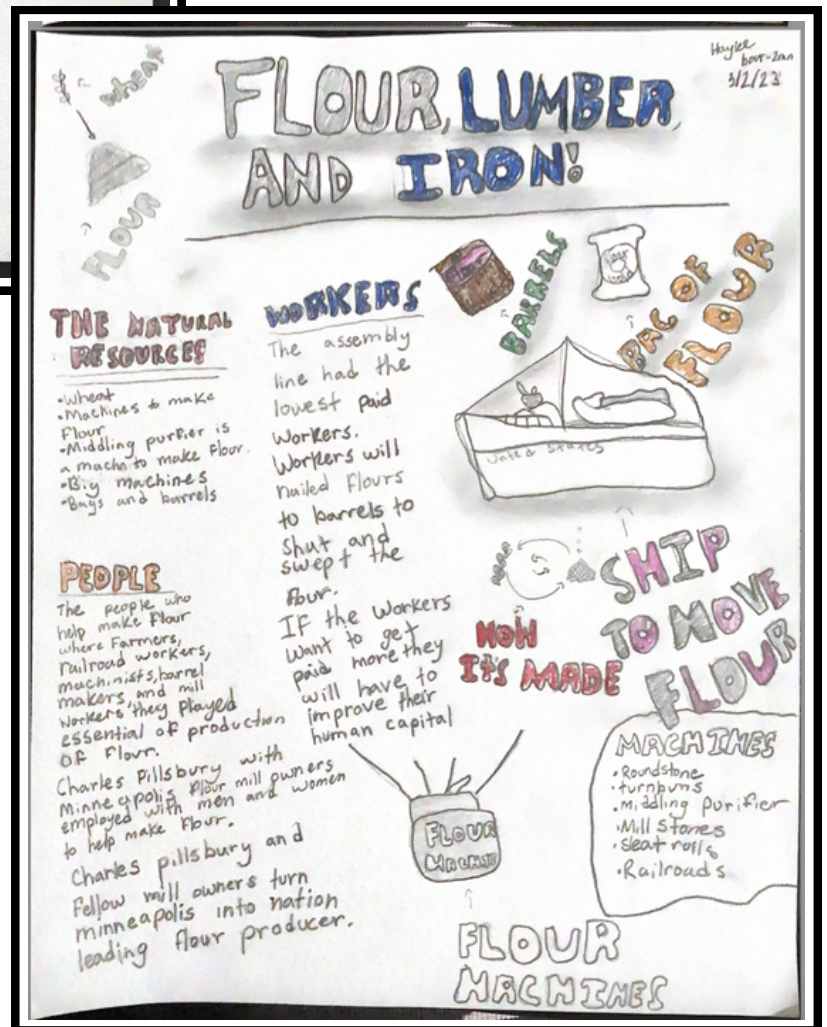 Haylee
3/2/23
wheat
FLOUR
FLOUR, LUMBER,
AND IRON!
THE NATURAL
RESOURCES
•Wheat
•Machines to make
Flour
•Middling purfier is
a machn to make flour.
•Big machines
•Bags and barrels
PEOPLE
The people who
help make Flour
where Farmers,
railroad workers,
machinists, barrel
makers, and mill
workers, they played
essential of production
OF Flour.
Charles Pillsbury with
Minneapolis flour mill owners
employed with men and women
to help make flour.
Charles pillsbury and
Fellow mill owners turn
minneapolis into nation
leading flour producer.
WORKERS
The assembly
line had the
lowest paid
workers.
Workers will
nailed flours
to barrels to
shut and
swept the
flour.
IF the workers
want to get
paid more they
will have to
improve their
human capital
BARRELS
BAG OF
FLOUR
United States
SHIP
TO MOVE
FLOUR
HOW
IT'S MADE
FLOUR
FLOUR
MACHINES
MACHINES
•Roundstone
•middling purifier
•Mill stones
•Railroads